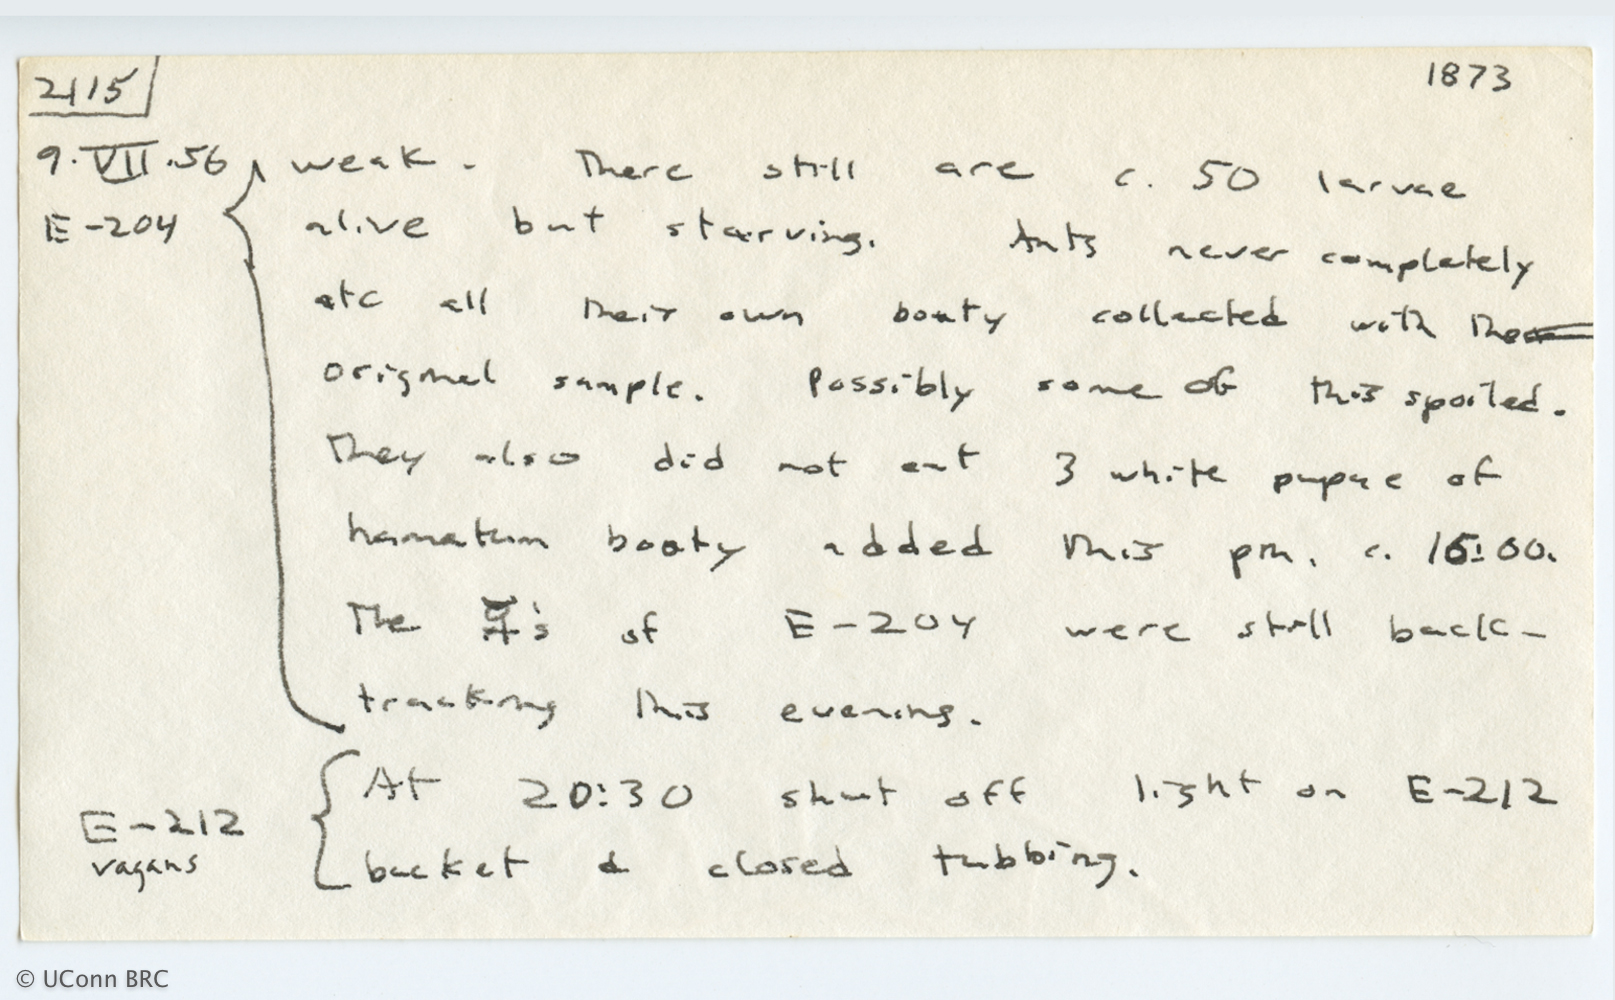 2115
1873
9.VII.56
E-204
weak. There still are c. 50 larvae
alive but starving. Ants never completely
ate all their own booty collected with the
original sample. Possibly some of this spoiled.
They also did not eat 3 white pupae of
hamatum booty added this pm. c. 16:00.
The ☿'s of E-204 were still back-
tracking this evening.
E-212
vagans
At 20:30 shut off light on E-212
bucket & closed tubbing.
© UConn BRC